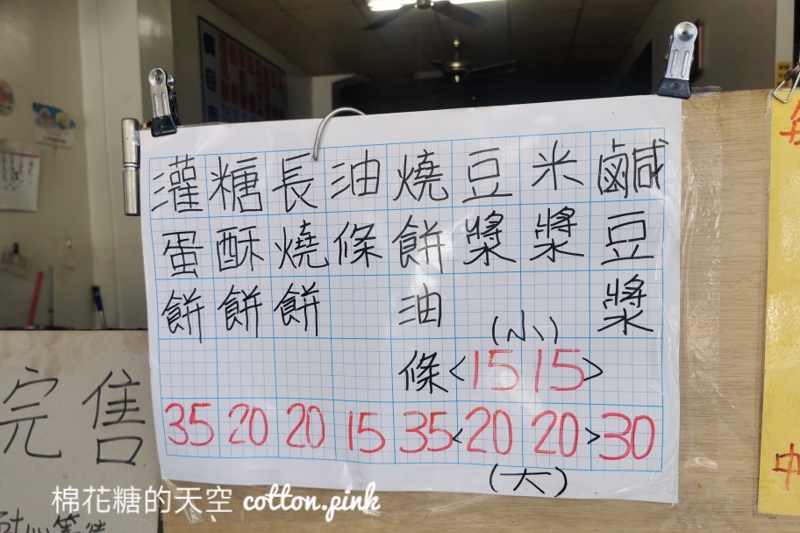 鹹豆漿 30
米漿 (小) 15 (大) 20
豆漿 (小) 15 (大) 20
燒餅油條 35
油條 15
長燒餅 20
糖酥餅 20
灌蛋餅 35
完售
棉花糖的天空 cotton.pink